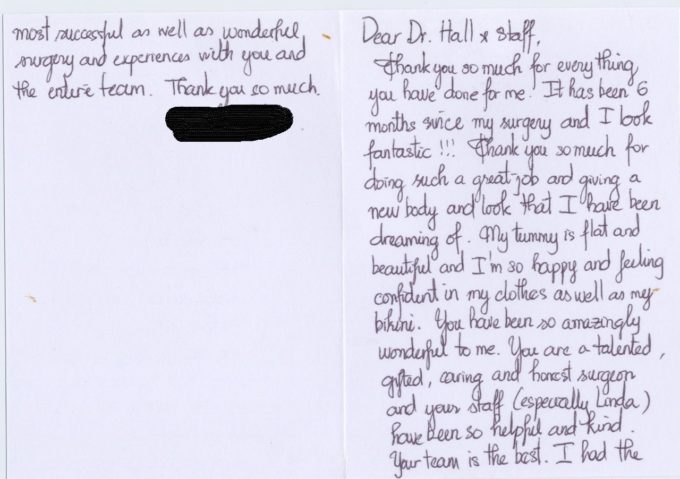 Dear Dr. Hall & Staff,
Thank you so much for everything
you have done for me. It has been 6
months since my surgery and I look
fantastic !!! Thank you so much for
doing such a great job and giving a
new body and look that I have been
dreaming of. My tummy is flat and
beautiful and I'm so happy and feeling
confident in my clothes as well as my
bikini. You have been so amazingly
wonderful to me. You are a talented,
gifted, caring and honest surgeon
and your staff (especially Linda)
have been so helpful and kind.
Your team is the best. I had the
most successful as well as wonderful
surgery and experiences with you and
the entire team. Thank you so much.